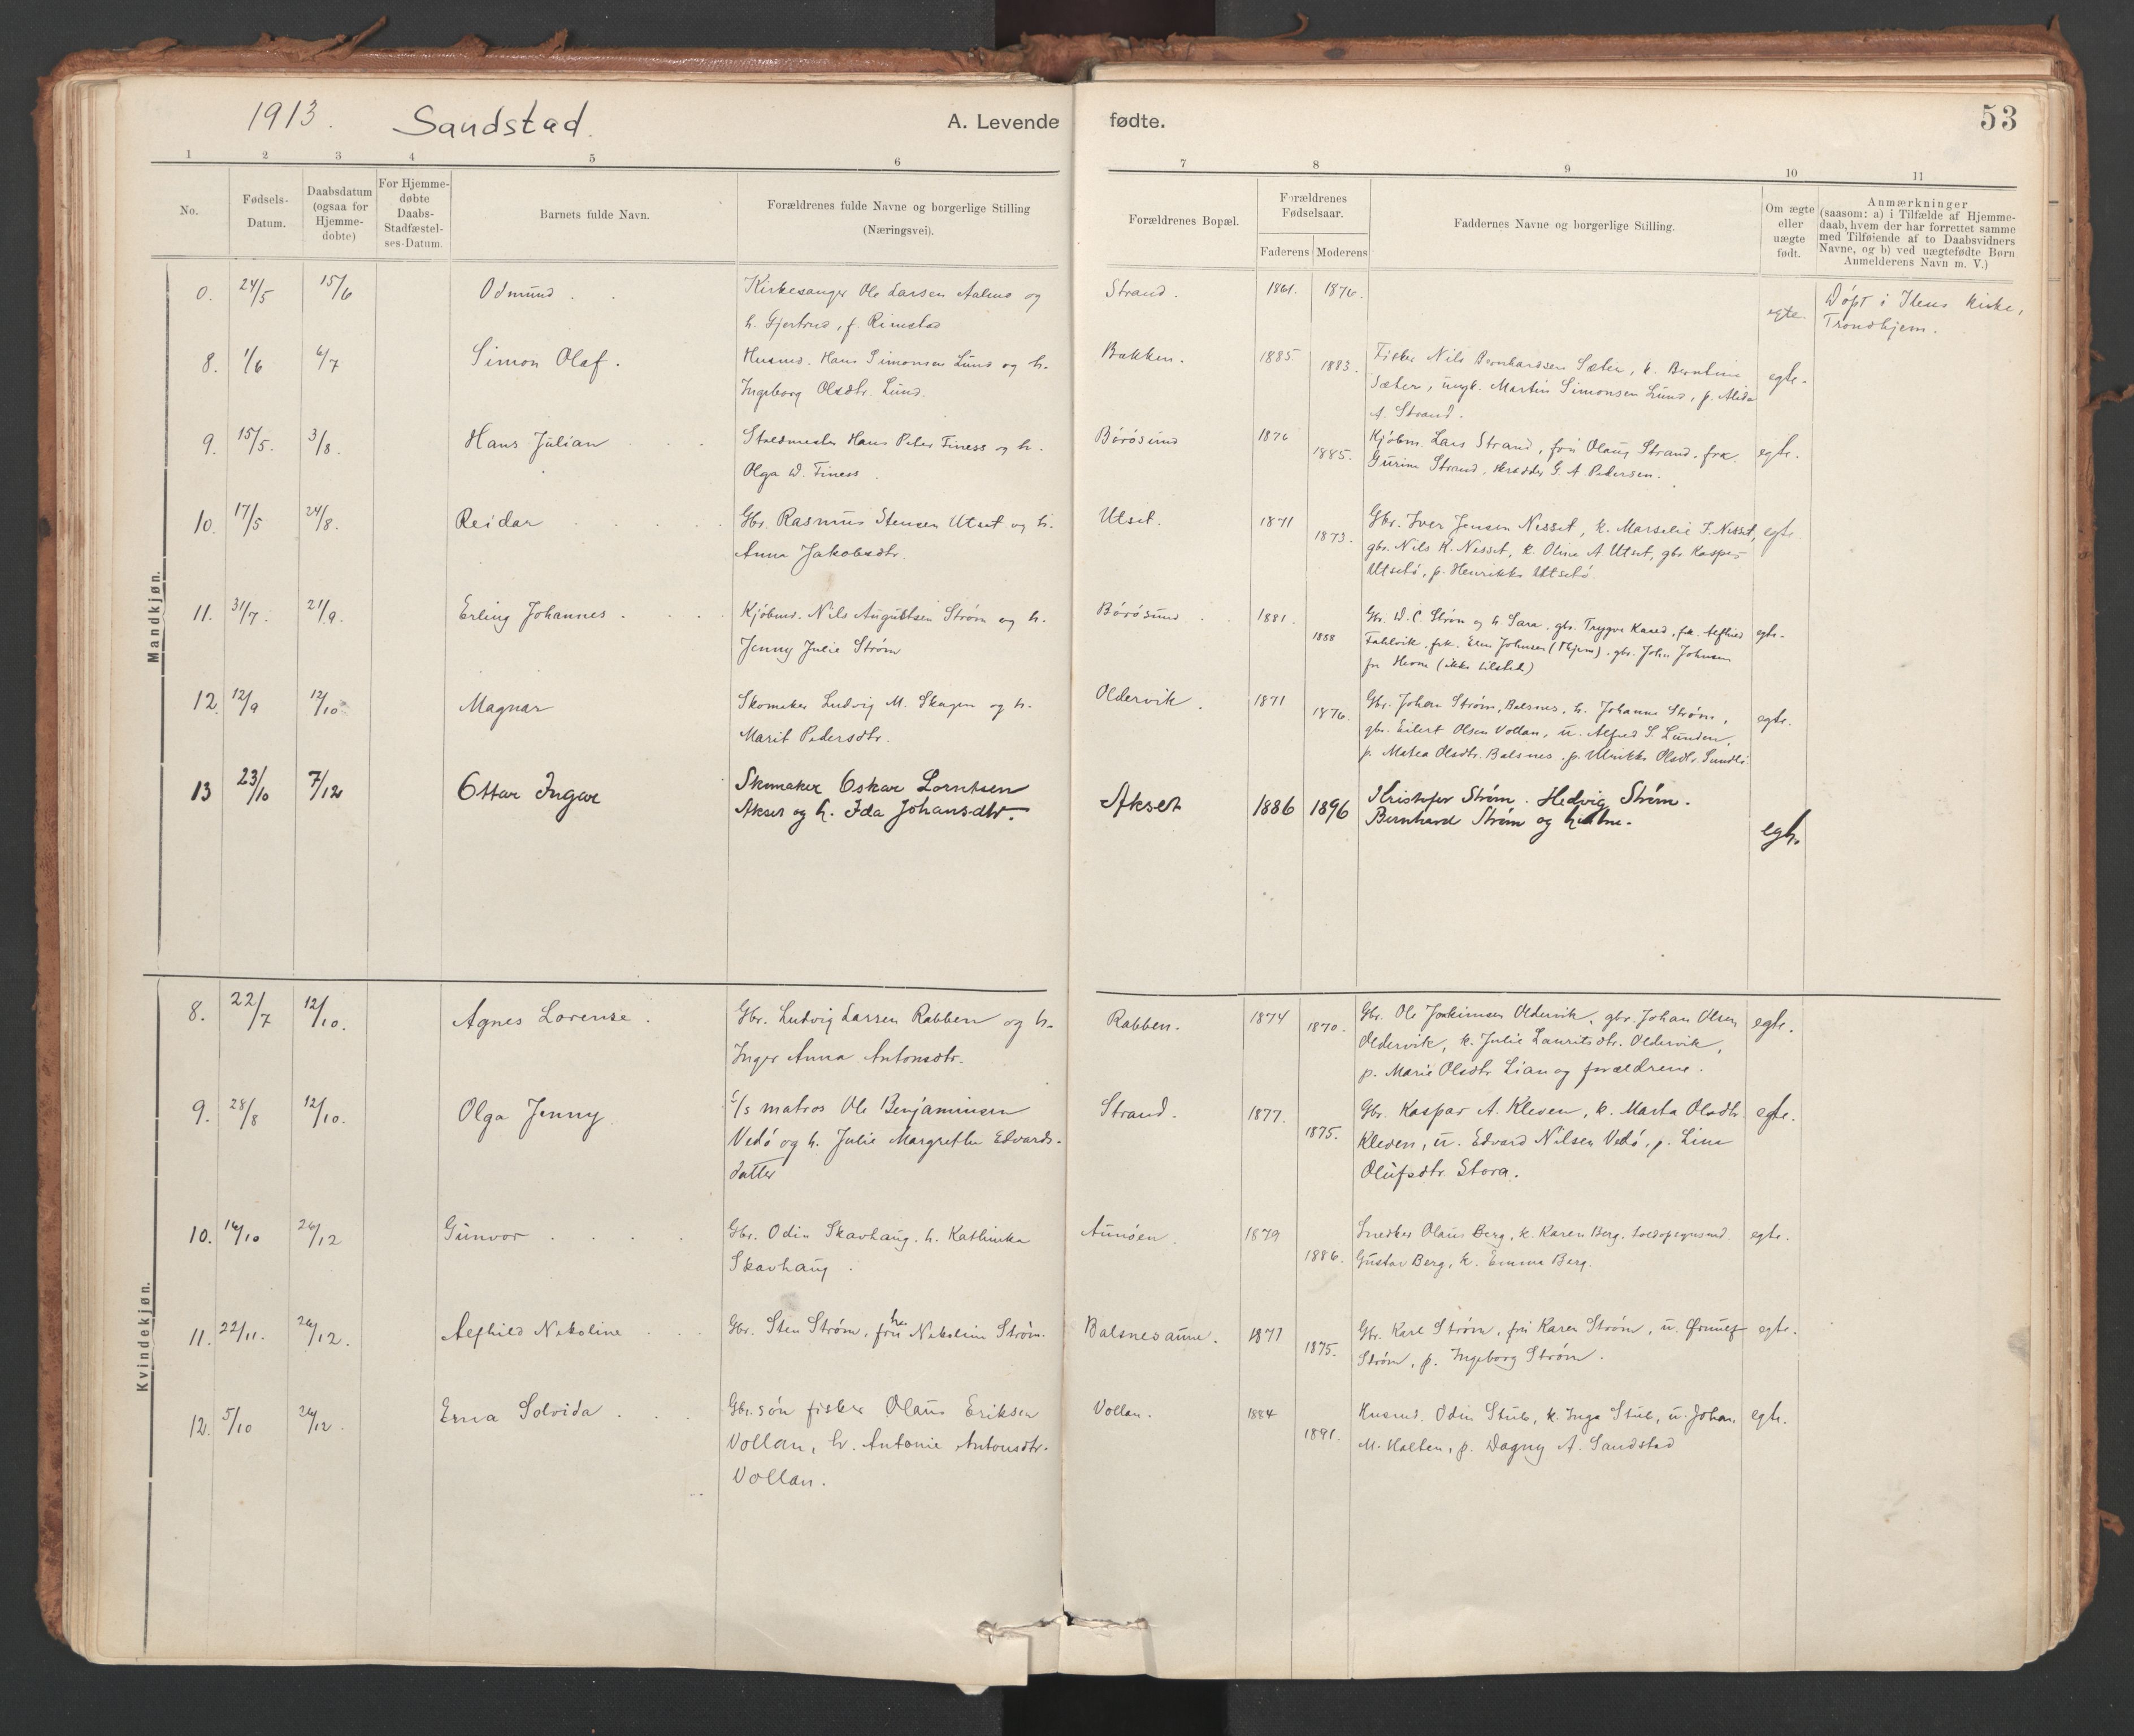 1913. Sandstad. A. Levende fødte. 53
1 2 3 4 5 6 7 8 9 10 11
No.
Fødsels-
Datum.
Daabsdatum
(ogsaa for
Hjemme-
døbte)
For Hjemme-
døbte
Daabs-
Stadfæstel-
ses-Datum.
Barnets fulde Navn.
Forældrenes fulde Navne og borgerlige Stilling
(Næringsvei).
Forældrenes Bopæl.
Forældrenes
Fødselsaar.
Faderens Moderens
Faddernes Navne og borgerlige Stilling.
Om ægte
eller
uægte
født.
Anmærkninger
(saasom: a) i Tilfælde af Hjemme-
daab, hvem der har forrettet samme
med Tilføiende af to Daabsvidners
Navne, og b) ved uægtefødte Børn
Anmelderens Navn m. V.)
Mandkjøn.
0. 24/5 15/6 Odmund Kirkesanger Ole Larsen Aalmo og Strand. 1861. 1876. egte. Døpt i Ilens Kirke,
h. Gjertrud, f. Rimstad Trondhjem.
8. 1/6 6/7 Simon Olaf. Husmd. Hans Simonsen Lund og h. Bakken. 1885. 1883. Fisker Nils Bernhardsen Sæter, k. Berntine egte.
Ingeborg Olsdtr. Lund. Sæter, ungk. Martin Simonsen Lund, p. Alida
A. Strand.
9. 15/5. 3/8. Hans Julian Hans Peter Finess og h. Børøsund 1876 1885. Kjøbm. Lars Strand, fru Olaug Strand, frk. egte.
Olga W. Finess. Gurine Strand, skrædder G. A. Pedersen.
10. 17/5 24/8. Reidar Gbr. Rasmus Stensen Utset og h. Utset. 1871 1873. Gbr. Iver Jensen Nesset, k. Marselie I. Nesset, egte
Anna Jakobsdtr. gbr. Nils K. Nesset, k. Oline A Utset, gbr. Kasper
Utsetø, p. Henrikke Utsetø.
11. 31/7. 21/9. Erling Johannes Kjøbmd. Nils Augustsen Strøm og h. Børøsund 1881. 1888 Gbr. W. C. Strøm og h Sara, gbr. Trygve Kared, frk. Alfhild egte.
Jenny Julie Strøm Fahlvik, frk. Elen Johnsen (Thjem), gbr. John Johnsen
fr Hevne (ikke tilstede)
12. 12/9 12/10 Magnar Skomaker Ludvig M. Skagen og h. Oldervik. 1871 1876. Gbr. Johan Strøm, Balsnes, h. Johanna Strøm, egte.
Marit Pedersdtr. gbr. Eilert Olsen Vollan, u. Alfred S. Lunden,
p. Matea Olsdtr. Balsnes, p. Ulrikke Olsdtr. Sundli
13 23/10 7/12 Ottar Ingar Skomaker Oskar Lorntsen Akset 1886 1896 Kristofer Strøm. Hedvig Strøm. egte.
Akset og h. Ida Johansdtr. Bernhard Strøm og
Kvindekjøn.
8. 22/7 12/10. Agnes Lorense. Gbr. Ludvig Larsen Rabben og h. Rabben. 1874 1870. Gbr. Ole Joakimsen Oldervik, gbr. Johan Olsen egte.
Inger Anna Antonsdtr. Oldervik, k. Julie Lauritsdtr. Oldervik,
p. Marie Olsdtr Lian og forældrene.
9. 28/8 12/10. Olga Jenny matros Ole Benjaminsen Strand. 1877. 1875. Gbr. Kaspar A. Kleven, k. Marta Olsdtr. egte.
Vedø og h. Julie Margrethe Edvards- Kleven, u. Edvard Nilsen Vedø, p. Lina
datter Olufsdtr. Stora.
10. 16/10 26/12 Gunvor Gbr. Odin Skavhaug. h. Kathinka Aunøen. 1879 1886. Snedker Olaus Berg, k. Karen Berg. toldopsynsmd. egte.
Skavhaug. Gustav Berg, k. Emma Berg.
11. 22/11. 26/12. Alfhild Nikoline Gbr. Sten Strøm, fru Nikoline Strøm. Balsnesaune. 1877 1875. Gbr. Karl Strøm, fru Karen Strøm, u. egte.
Strøm, p. Ingeborg Strøm.
12. 5/10 26/12. Erna Solvida Gbr.søn fisker Olaus Eriksen Vollan. 1884 1891. Husmd. Odin Stub, k. Inga Stub, u. Johan egte.
Vollan, h. Antonie Antonsdtr. M. Holten, p. Dagny A. Sandstad
Vollan.